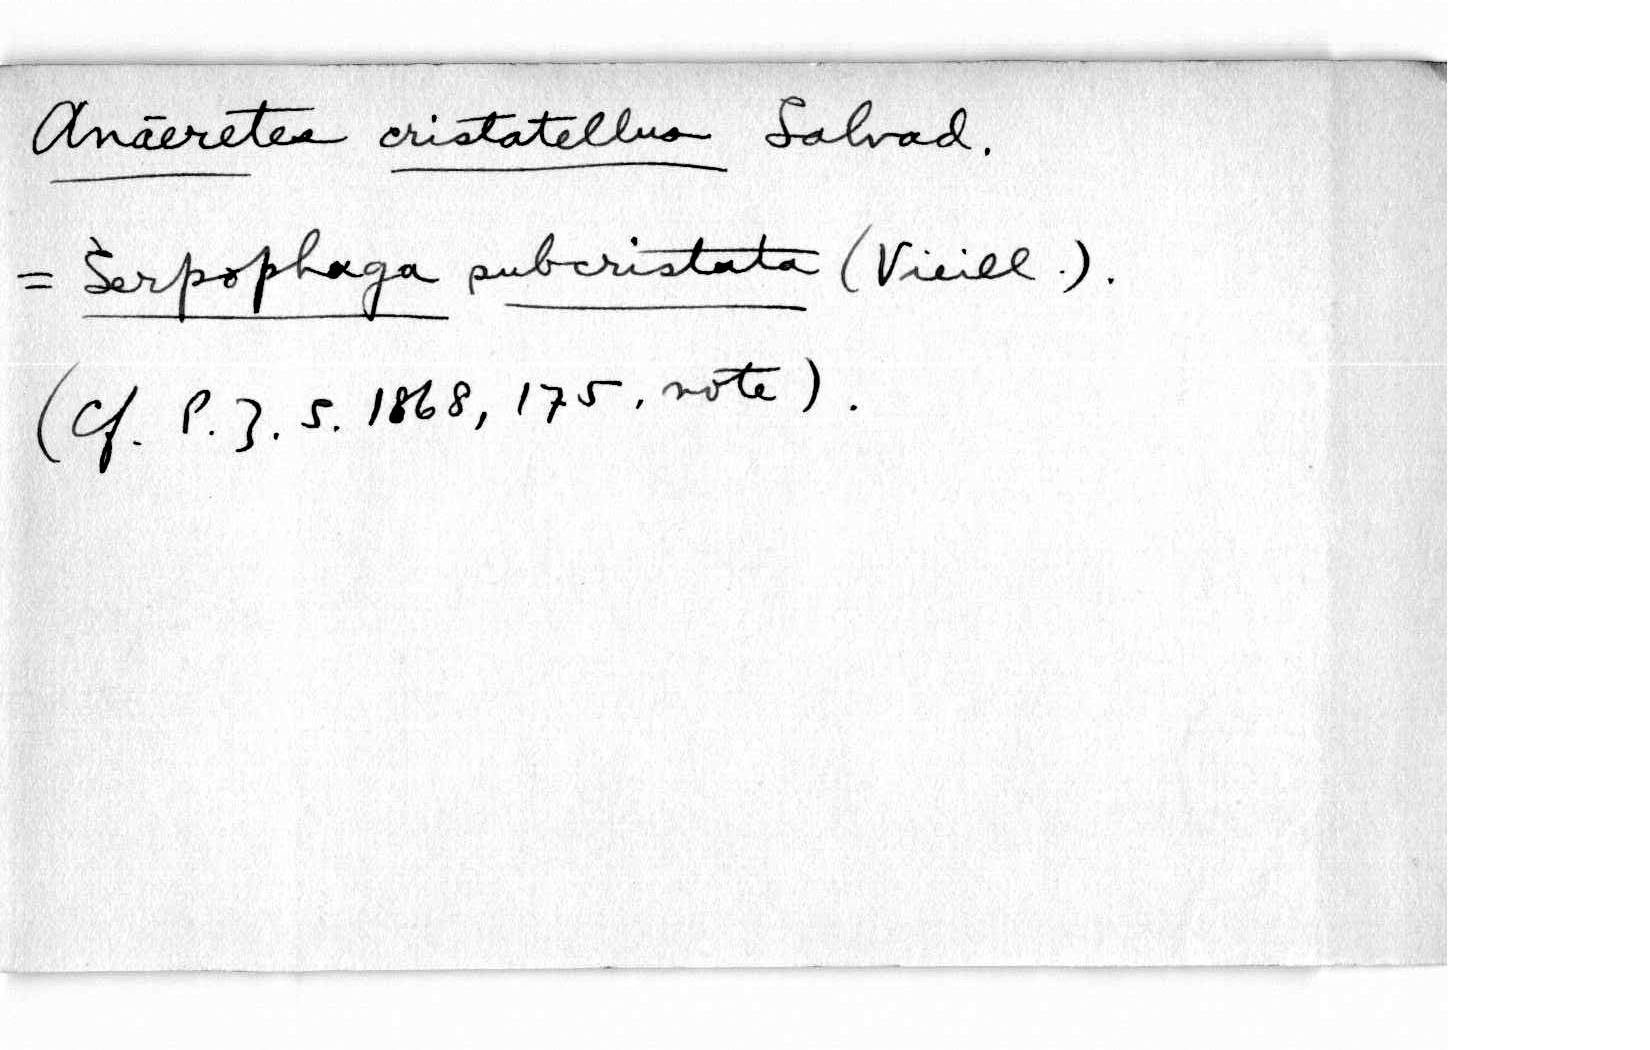 Anāeretes cristatellus Salvad.
= Serpophaga subcristata (Vieill.).
(Cf. P. Z. S. 1868, 175, note).